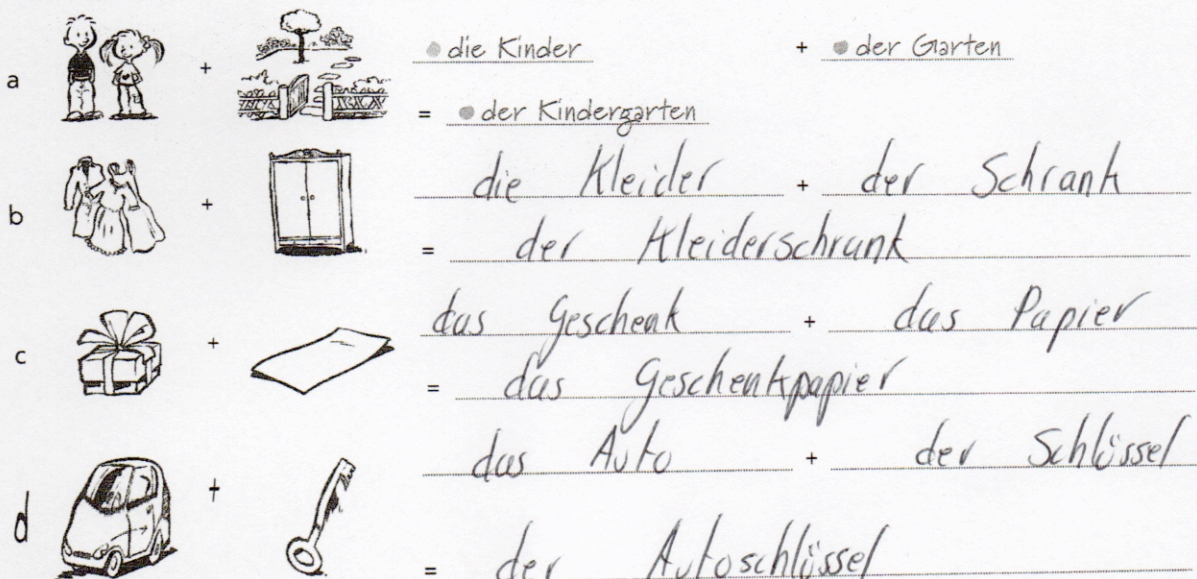 die Kinder + der Garten
a +
= der Kindergarten
die Kleider + der Schrank
b +
= der Kleiderschrank
das Geschenk + das Papier
c +
= das Geschenkpapier
das Auto + der Schlüssel
d +
= der Autoschlüssel